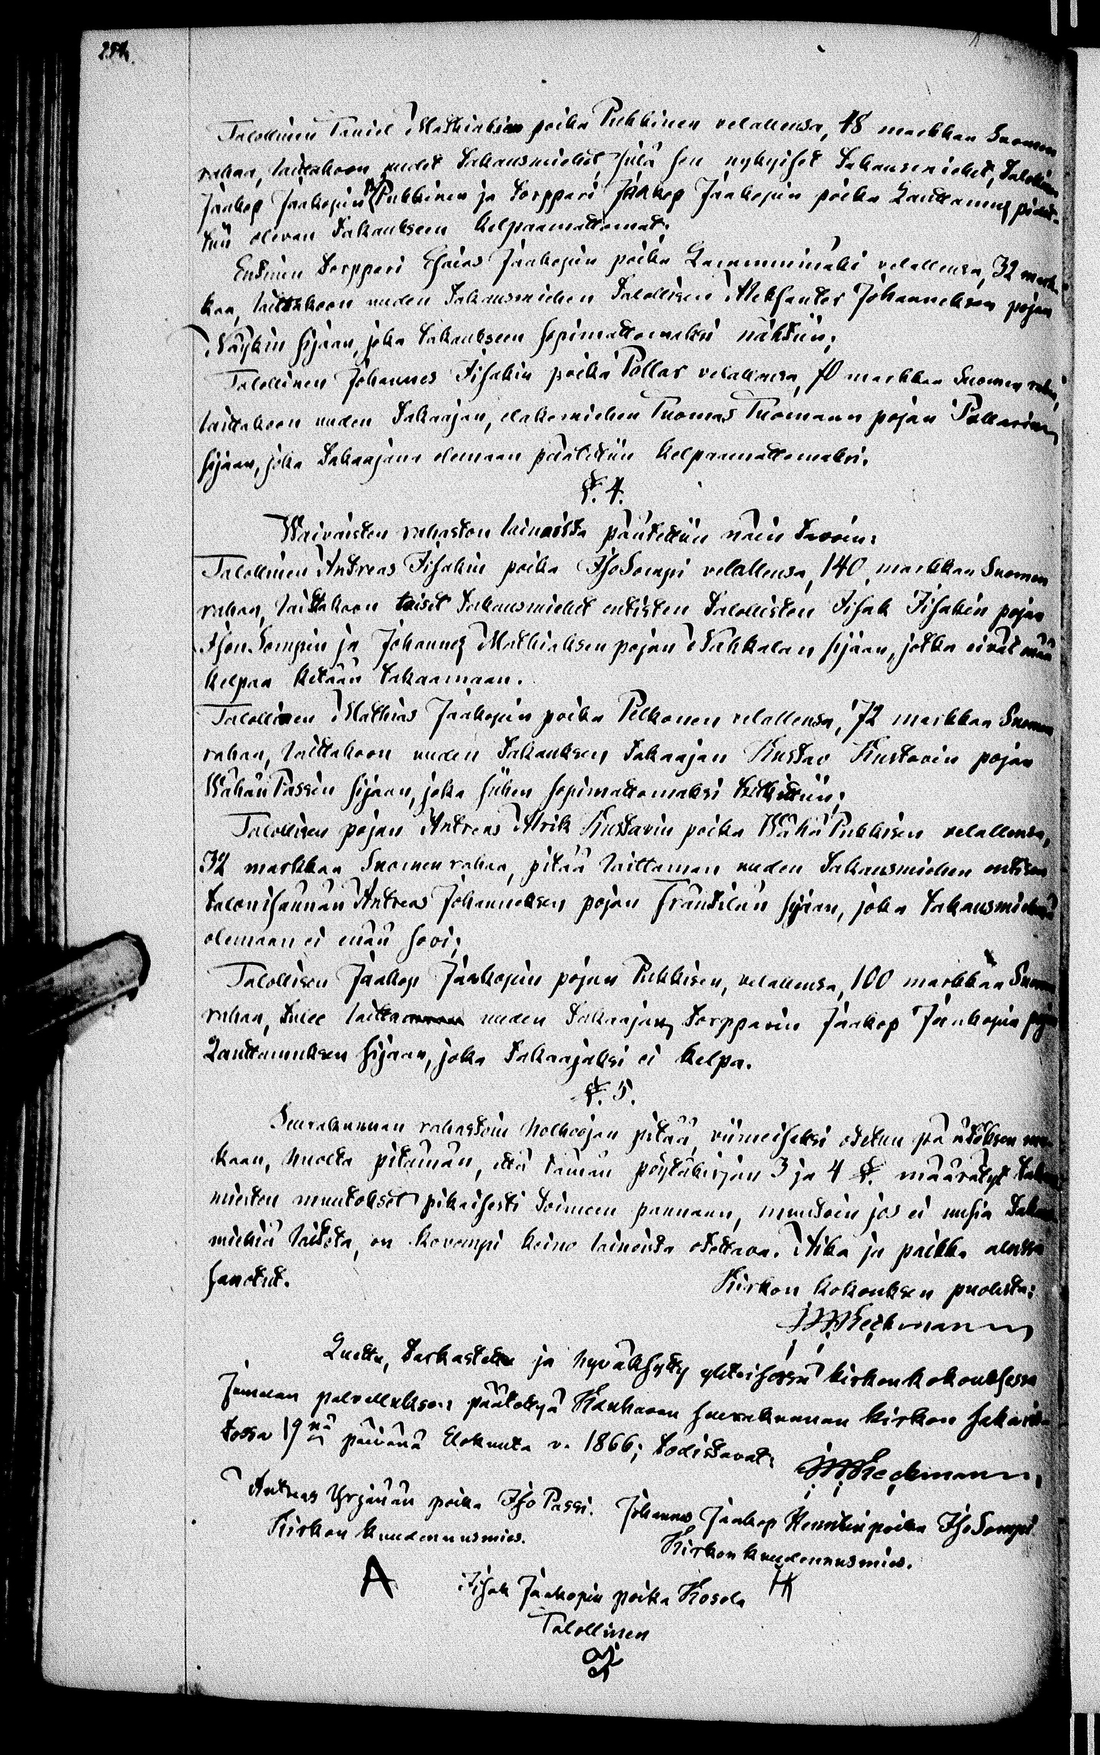 254.
Talollinen Daniel Mathiaksen poika Pukkinen velallensa, 48 markkaa Suomen
rahaa, laittakoon uudet Takausmiehet, sillä sen nykyiset Takausmiehet, Talollinen
Jaakop Jaakopin p. Pukkinen ja Torppari Jaakop Jaakopin poika Lauttamus päätet-
tiin olevan Takaukseen kelpaamattomat;
Entinen Torppari Esaias Jaakopin poika Lavamminmäki velallensa, 32 mark-
kaa, laittakoon uuden Takausmiehen Talollisen Aleksanter Johanneksen pojan
Näykin sijaan, joka takaukseen sopimattomaksi nähtiin;
Talollinen Johannes Iisakin poika Pollar velallensa, 70 markkaa Suomen rahaa,
laittakoon uuden Takaajan, elakemiehen Tuomas Tuomaan pojan Pollarin
sijaan, joka Takaajana olemaan päätettiin kelpaamattomaksi.
§. 4.
Waivaisten rahaston lainoista päätettiin näin tavoin:
Talollinen Andreas Iisakin poika IsoSompi velallensa, 140 markkaa Suomen
rahaa, laittakoon toiset Takausmiehet entisten Talollisten Iisak Iisakin pojan
Ison Sompin ja Johannes Mathiaksen pojan Nahkalan sijaan, jotka eivät enää
kelpaa ketään takaamaan.
Talollinen Mathias Jaakopin poika Pelkonen velallensa, 72 markkaa Suomen
rahaa, laittakoon uuden Takauksen Takaajan Kustav Kustavin pojan
Wähän Passin sijaan, joka siihen sopimattomaksi tutkittiin;
Talollisen pojan Antreas Alrik Kustavin poika Wähä Pukkisen velallensa,
32 markkaa Suomen rahaa, pitää laittaman uuden Takausmiehen entisen
talonisännän Antreas Johanneksen pojan Frantilan sijaan, joka takausmiehenä
olemaan ei enää sovi;
Talollisen Jaakop Jaakopin pojan Pukkisen, velallensa, 100 markkaa Suomen
rahaa, tulee laittaa uuden Takaajan, Torpparin Jaakop Jaakopin pojan
Lauttamuksen sijaan, joka Takaajaksi ei kelpa.
§. 5.
Seurakunnan rahastoin holhoojan pitää, viimeiseksi otetun päätöksen mu-
kaan, huolta pitämän, että tämän pöytäkirjan 3 ja 4 §. määrätyt takaus
miesten muutokset pikaisesti toimeen pannaan, muutoin jos ei uusia Takaus
miehiä laiteta, on kovempi keino lainoista otettava. Aika ja paikka alussa
sanotut. Kirkon kokouksen puolesta:
Luettu, tarkastettu ja hyväksytty yhteisessä kirkonkokouksessa
Jumalan palveluksen päätettyä Kauhavan seurakunnan kirkon sakaris-
tossa 19nä päivänä Elokuuta v. 1866; todistavat:
Andreas Yrjänän poika Iso Passi. Johannes Jaakop Henrikin poika IsoSompi
Kirkon kuudennusmies. Kirkon kuudennusmies.
A H
Iisak Jaakopin poika Kosola
Talollinen